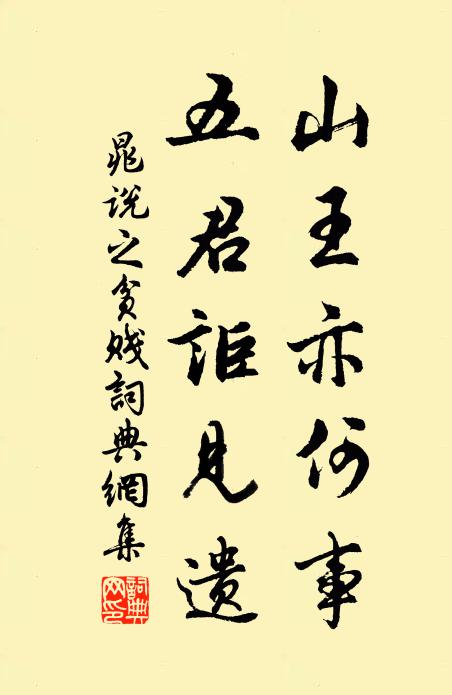 山王亦何事
五君詎見遺
晁說之貧賤詞典網集
詞典
网印